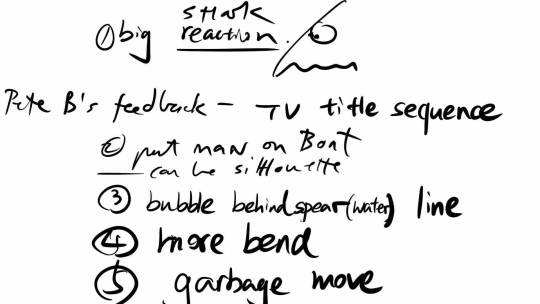 ① big shark reaction.
Pete B's feedback - TV title sequence
② put man on Boat
can be silhouette
③ bubble behind spear (water) line
④ more bend
⑤ garbage move